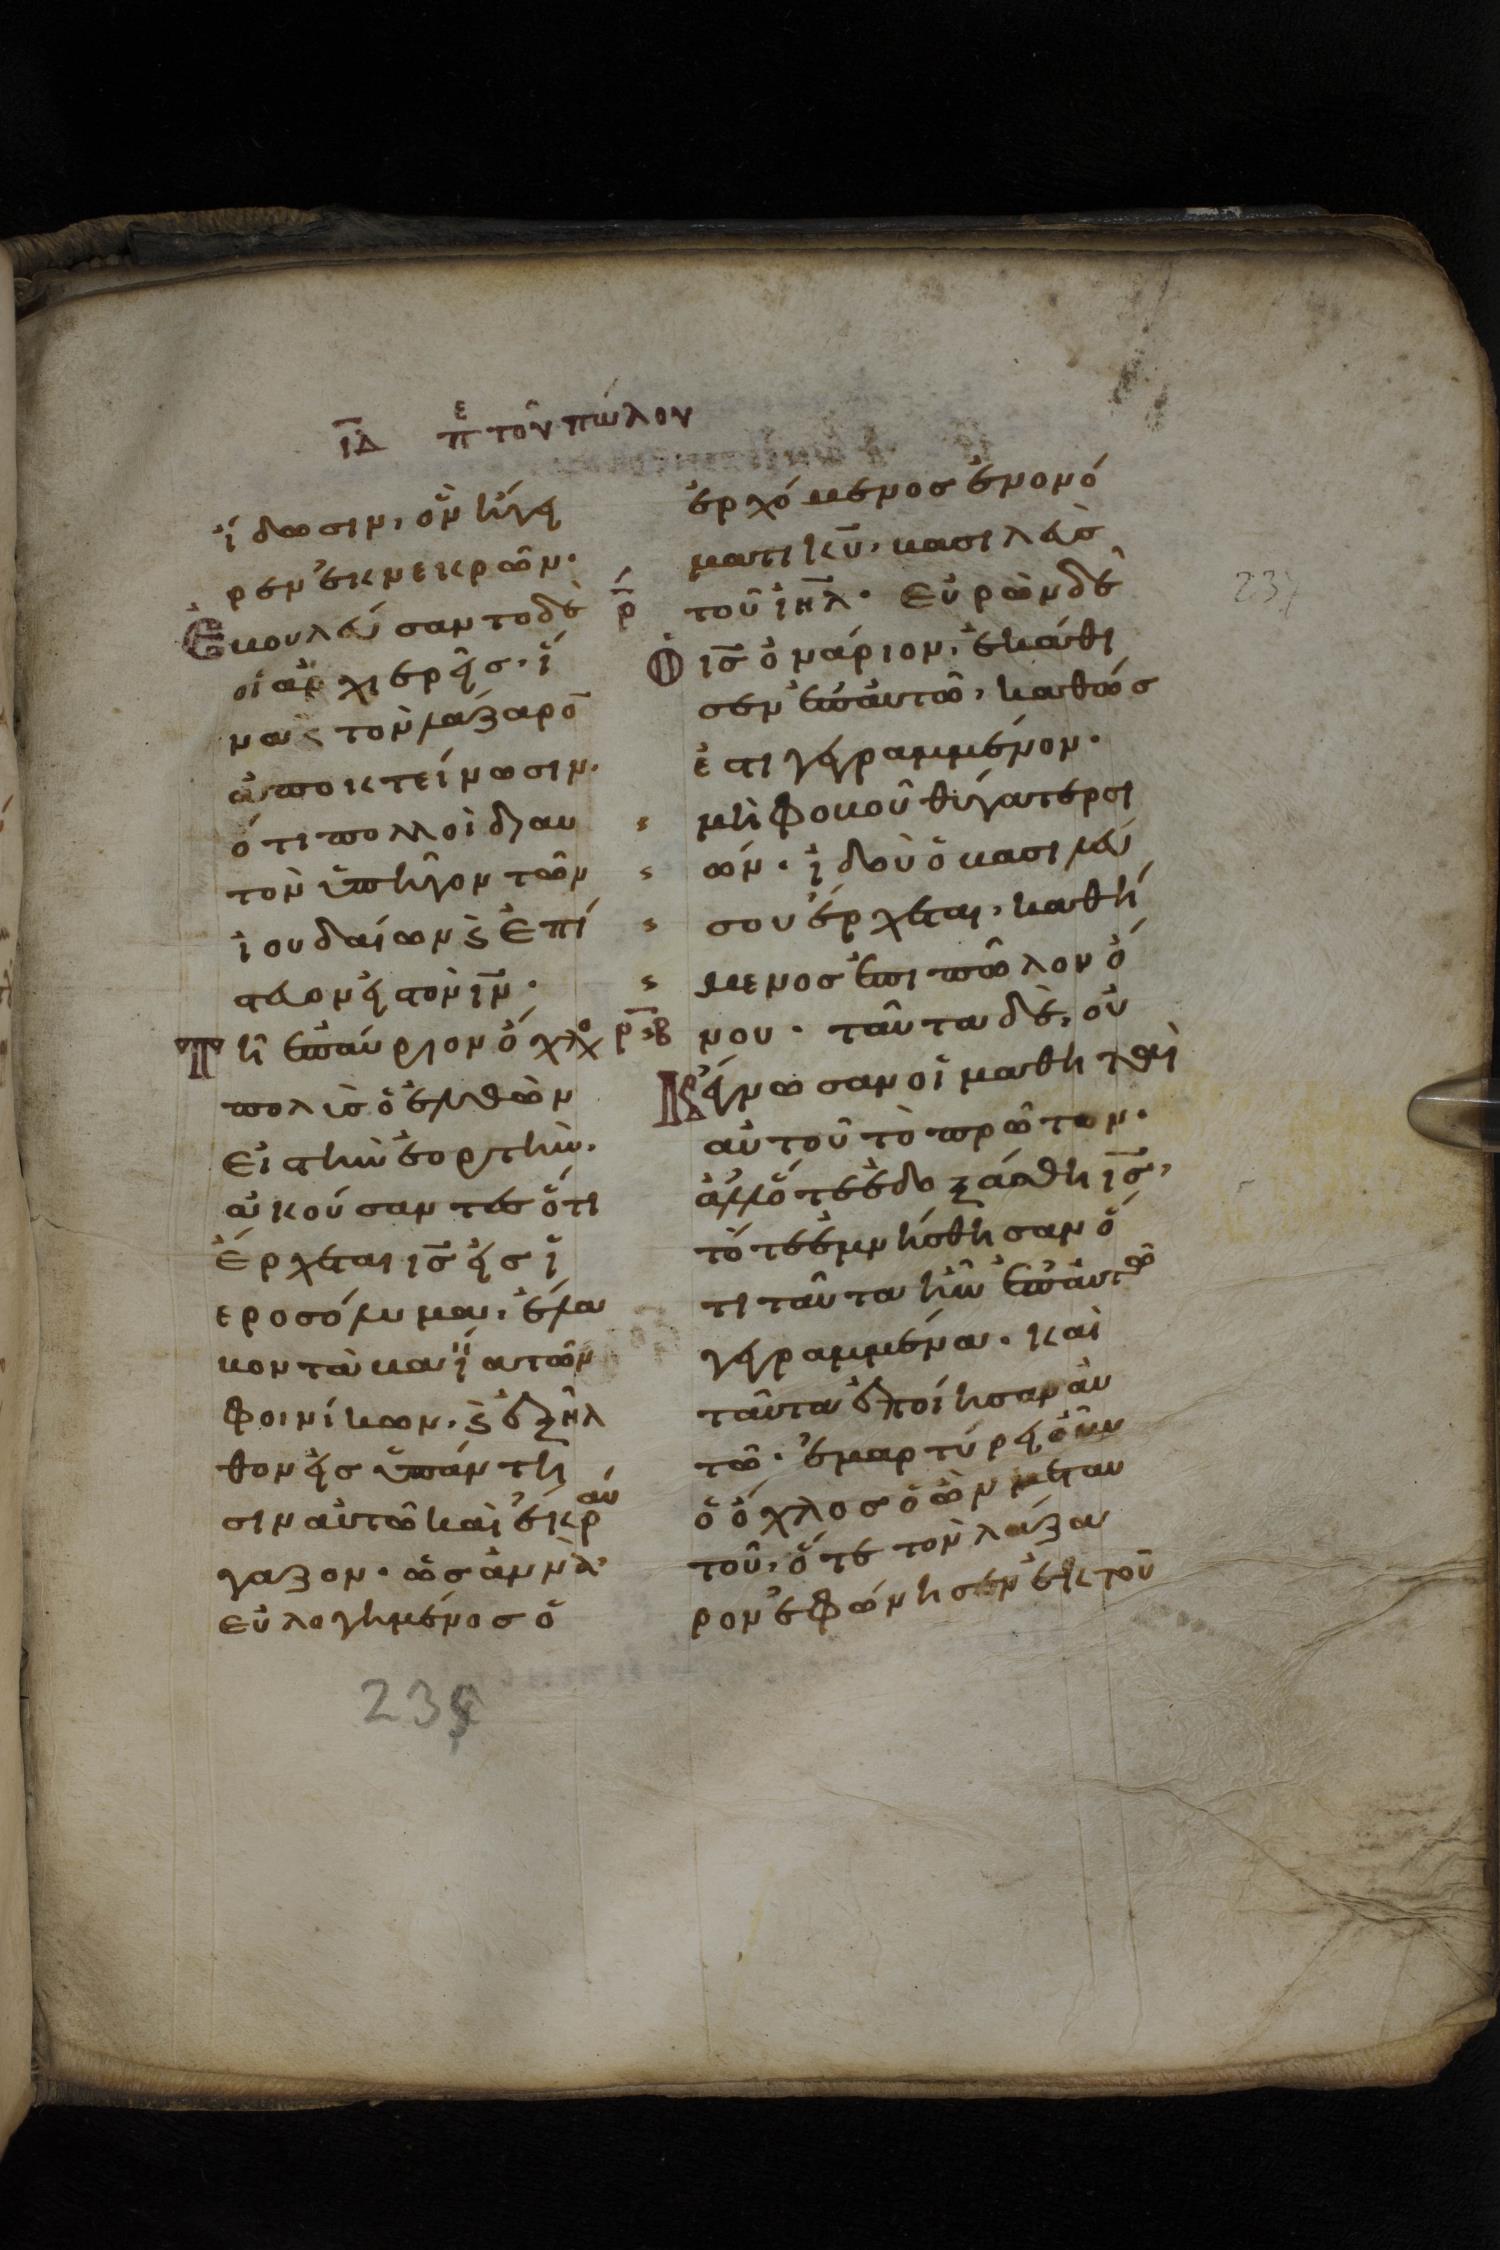 ιδ πε τὸν πῶλον
ἴδωσιν, ὃν ἤγει
ρεν ἐκ νεκρῶν.
Ἐβουλεύσαντο δὲ
οἱ ἀρχιερεῖσ. ἵ
να κς τὸν λάζαρο̅
ἀποκτείνωσιν.
ὅτι πολλοὶ δι αυ
τὸν ὑπῆγον τῶν
ἰουδαίων κς ἐπί
στευον εἰσ τὸν ι̅ν̅.
Τῆ ἐπαύριον ὄχλο
πολὺσ ὁ ἐλθὼν
εἰσ τὴν ἑορτὴν.
ἀκούσαντεσ ὅτι
ἔρχεται ι̅σ̅ εἰσ ἱ
εροσόλυμα, ἔλα
βον τὰ βαΐα τῶν
φοινίκων. κς ἐξῆλ
θον εἰσ ὑπάντη
σιν αὐτῶ καὶ ἔκραυ
γαζον. ὡσαννὰ
εὐλογημένοσ ὁ
ἐρχόμενοσ ἐν ὀνό
ματι κ̅υ̅, βασιλεὺσ
ρ̅
τοῦ ι̅η̅λ̅. Εὑρὼν δὲ
Ὁ ι̅σ̅ ὀνάριον, ἐκάθι
σεν ἐπ αὐτῶ, καθώσ
ἐστι γεγραμμένον.
μὴ φοβοῦ θύγατερ σι
ών. ἰδοὺ ὁ βασιλεύ
σου ἔρχεται, καθή
μενοσ ἐπι πῶλον ὄ
ρ̅β̅
νου. ταῦτα δὲ, οὐ
Κ ἔγνωσαν οἱ μαθηταὶ
αὐτοῦ τὸ πρῶτον.
ἀλλ ὅτε ἐδοξάσθη ι̅σ̅,
τότε ἐμνήσθησαν ὅ
τι ταῦτα ἦν ἐπ αὐτῶ
γεγραμμένα. καὶ
ταῦτα ἐποίησαν αὐ
τῶ. ἐμαρτύρει οὖν
ὁ ὄχλοσ ὁ ὢν μετ αυ
τοῦ, ὅτε τὸν λάζα
ρον ἐφώνησεν ἐκ τοῦ
237